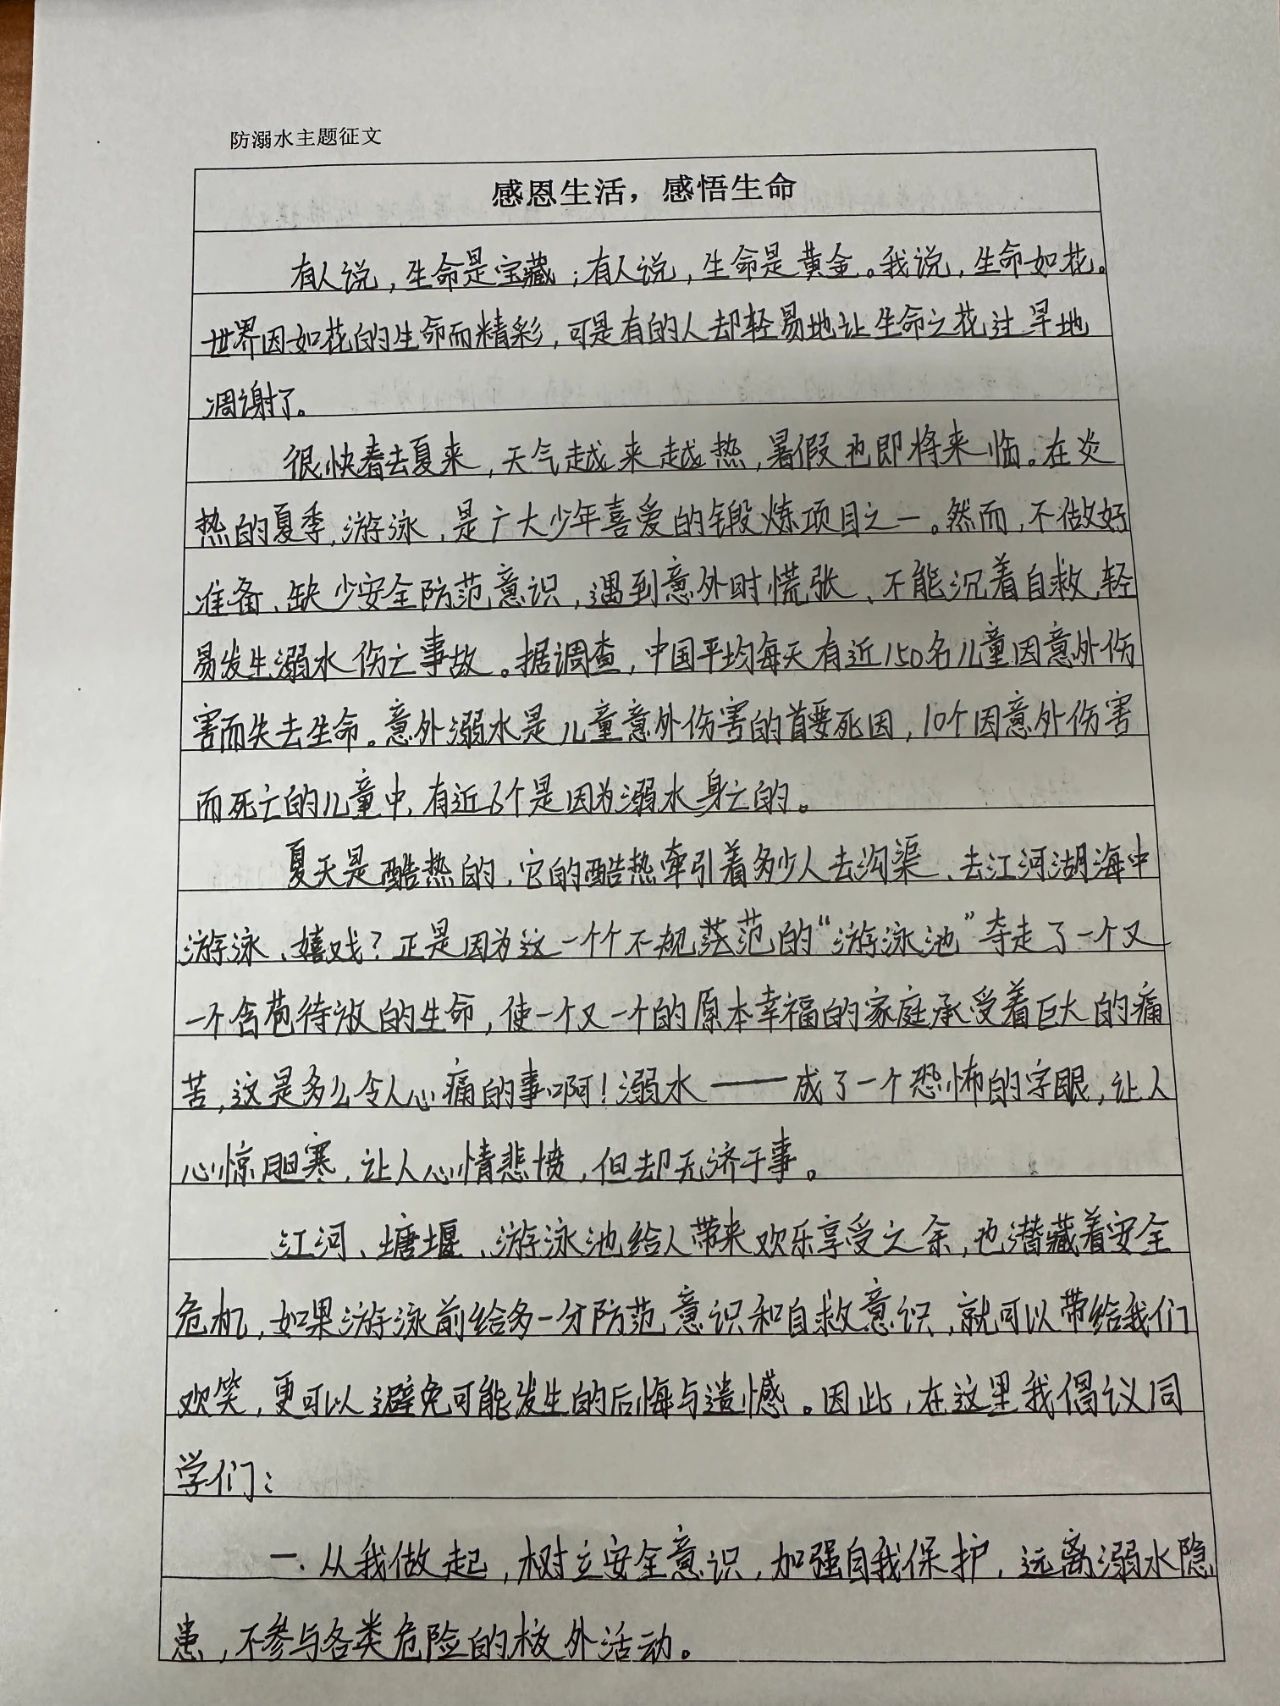 防溺水主题征文
感恩生活，感悟生命
有人说，生命是宝藏；有人说，生命是黄金。我说，生命如花。
世界因如花的生命而精彩，可是有的人却轻易地让生命之花过早地
凋谢了。
很快春去夏来，天气越来越热，暑假也即将来临。在炎
热的夏季，游泳，是广大少年喜爱的锻炼项目之一。然而，不做好
准备、缺少安全防范意识，遇到意外时慌张、不能沉着自救，轻
易发生溺水伤亡事故。据调查，中国平均每天有近150名儿童因意外伤
害而失去生命。意外溺水是儿童意外伤害的首要死因，10个因意外伤害
而死亡的儿童中，有近6个是因为溺水身亡的。
夏天是酷热的，它的酷热牵引着多少人去沟渠、去江河湖海中
游泳、嬉戏？正是因为这一个个不规范的“游泳池”夺走了一个又
一个含苞待放的生命，使一个又一个的原本幸福的家庭承受着巨大的痛
苦，这是多么令人心痛的事啊！溺水——成了一个恐怖的字眼，让人
心惊胆寒，让人心情悲愤，但却无济于事。
江河、塘堰、游泳池给人带来欢乐享受之余，也潜藏着安全
危机，如果游泳前给多一分防范意识和自救意识，就可以带给我们
欢笑，更可以避免可能发生的后悔与遗憾。因此，在这里我倡议同
学们：
一、从我做起，树立安全意识，加强自我保护，远离溺水隐
患，不参与各类危险的校外活动。